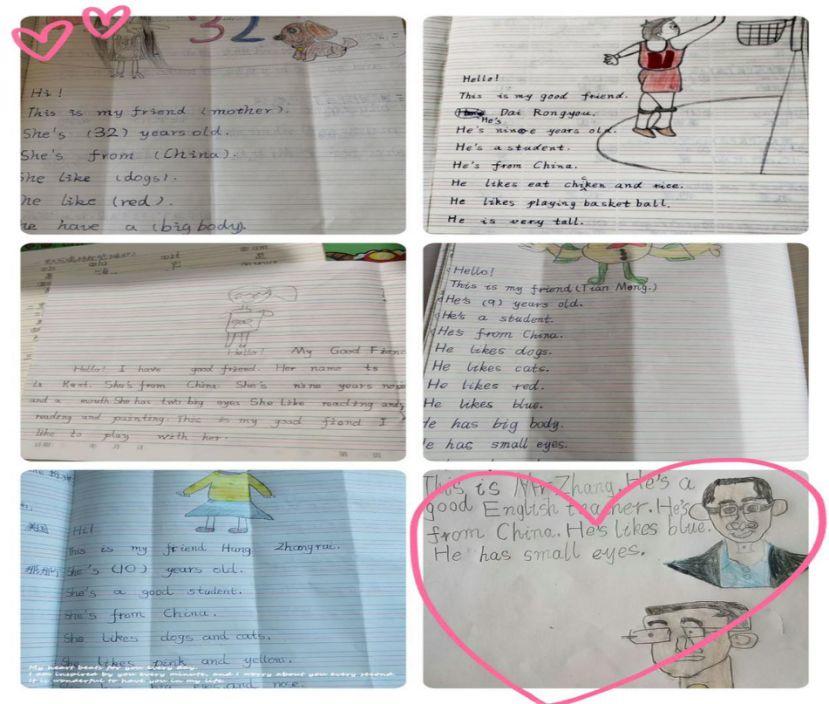 32
Hi!
This is my friend (mother).
She's (32) years old.
She's from (China).
She like (dogs).
he like (red).
he have a (big body).
Hello!
This is my good friend.
Dai Rongyou.
He's
He's nine years old.
He's a student.
He's from China.
He likes eat chiken and rice.
He likes playing basketball.
He is very tall.
Hello! My Good Frien
Hello! I have good friend. Her name is
is Keri. She's from China. She's nine years
and a mouth She has two big eyes She like reading and
reading and painting. This is my good fiond I
like to play with her.
Hello!
This is my friend (Tian Meng.)
He's (9) years old.
He's a student.
He's from China.
He likes dogs.
He likes cats.
He likes red.
He likes blue.
He has big body.
He has small eyes.
Hi!
This is my friend Hang Zhangrui.
She's (10) years old.
She's a good student.
She's from China.
She likes dogs and cats.
She likes pink and yellow.
eyes and nose.
My heart beats for you every day.
I am inspired by you every minute, and I worry about you every second.
It is wonderful to have you in my life.
This is Mr Zhang. He's a
good English teacher. He's
from China. He's likes blue.
He has small eyes.